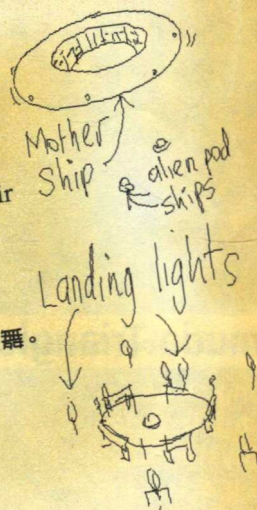 Mother
ship
alien pod
ships
ir
Landing lights
器。